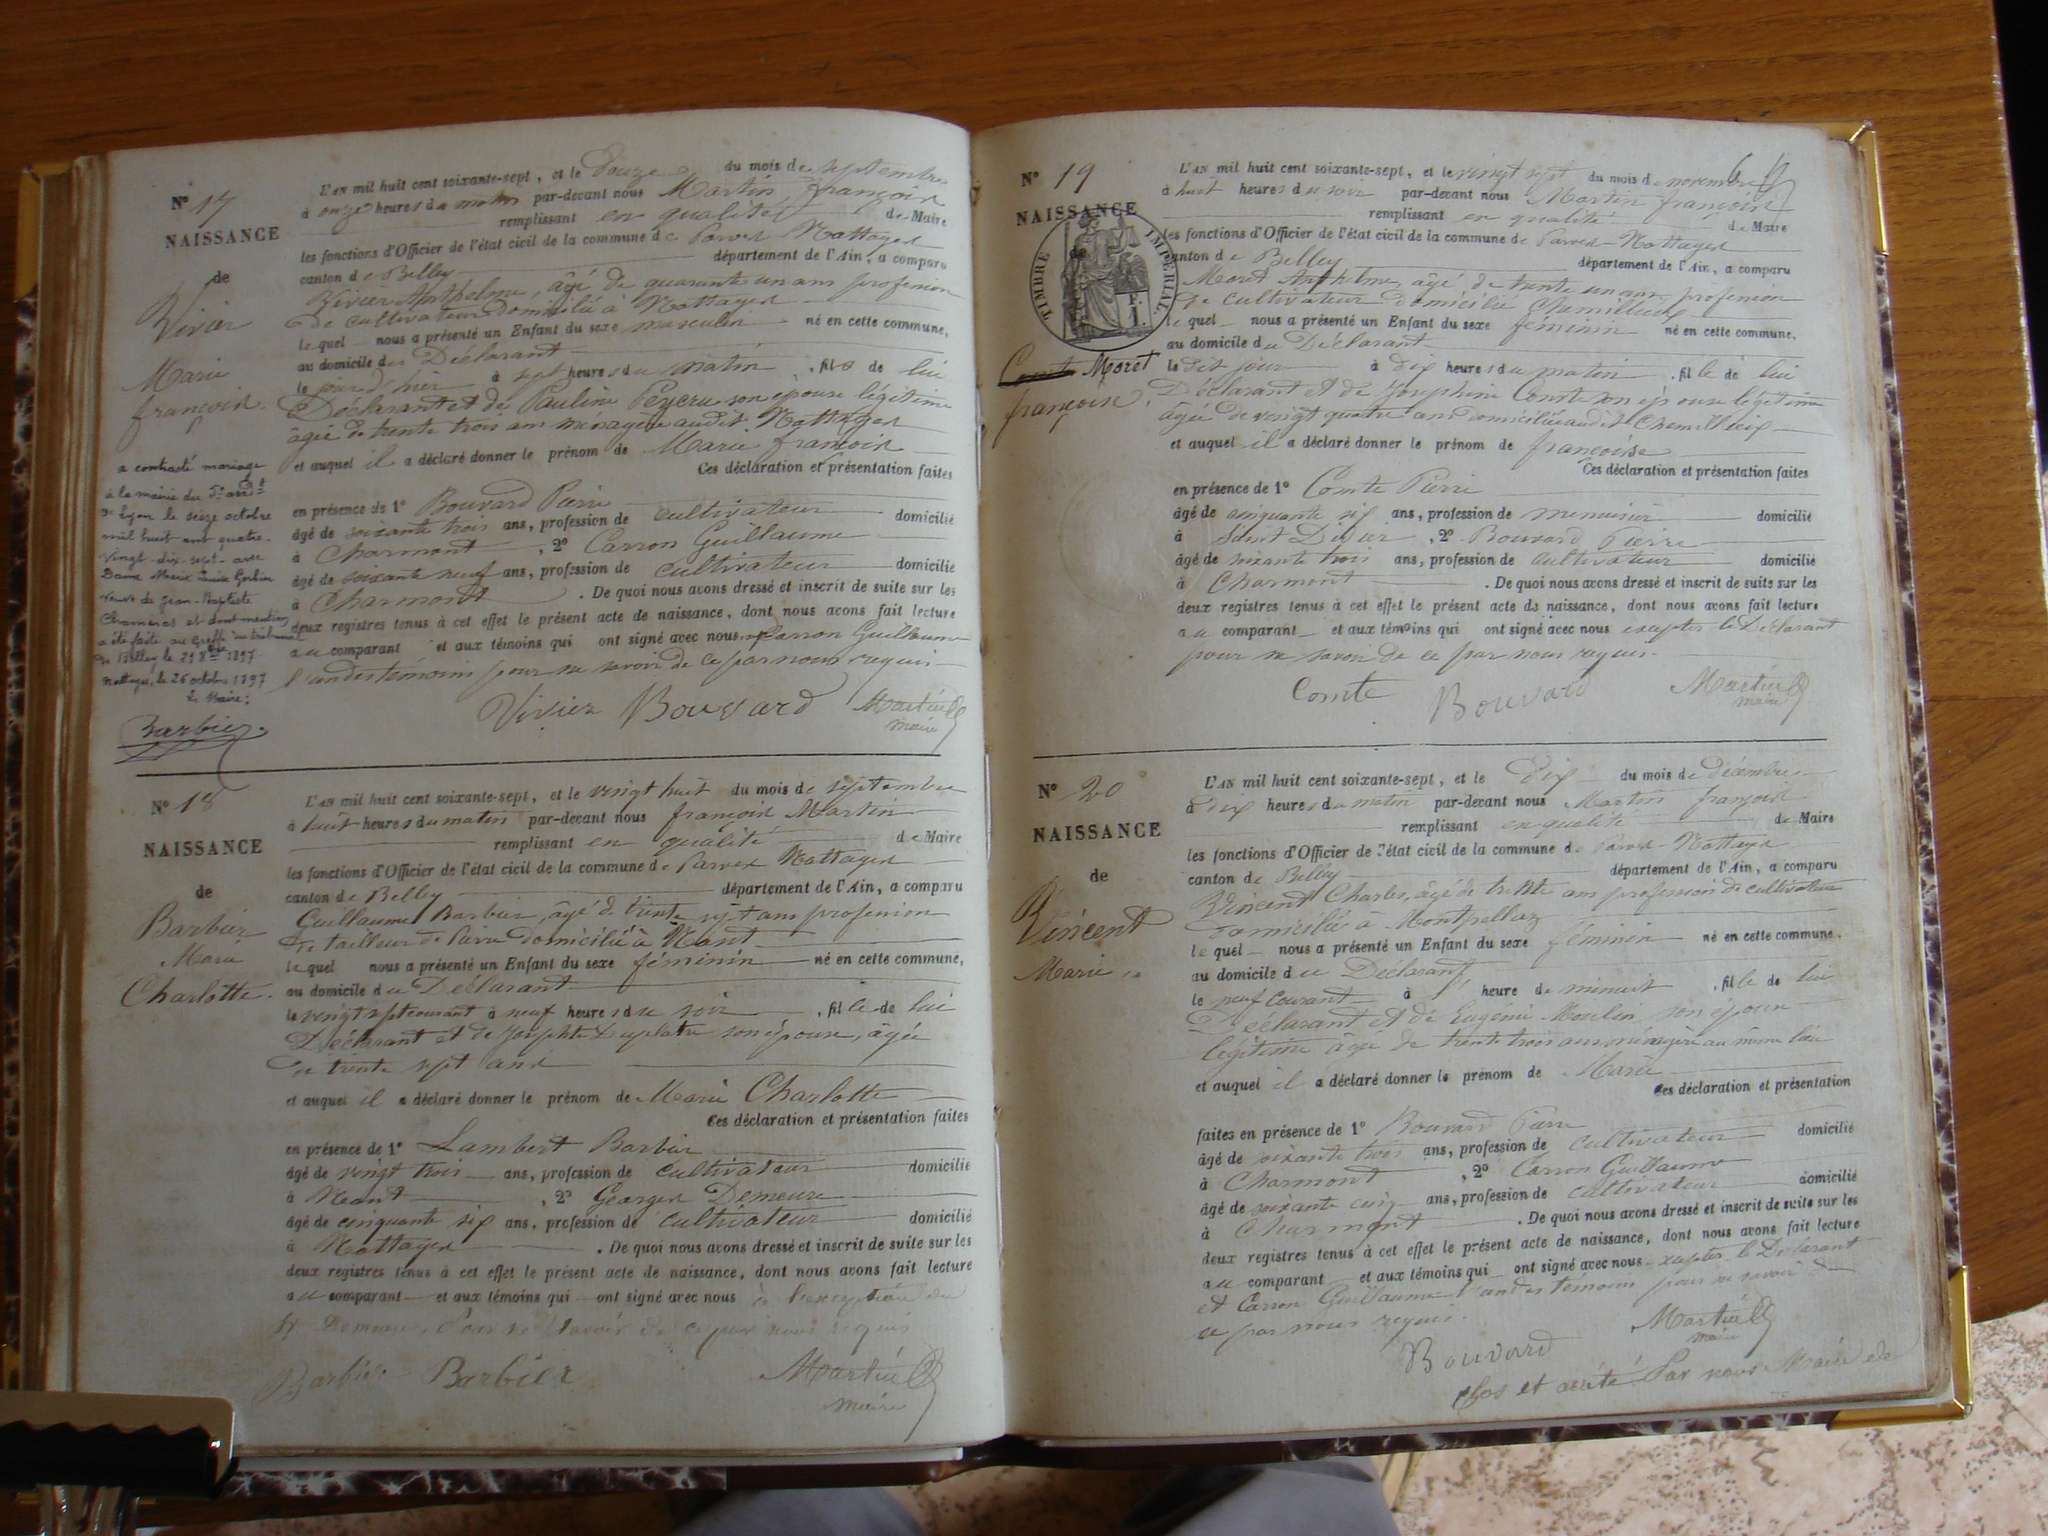 N° 17
NAISSANCE
de
Vivier
Marie
françois.
a contracté mariage
à la mairie du 5e arrdt
de Lyon le seize octobre
mil huit cent quatre-
vingt-dix-sept avec
Dame Marie Louise
veuve de Jean-Baptiste
et dont mention
a été faite au greffe du tribunal
de Belley le 29 8bre 1897
Nattages, le 26 octobre 1897
Le Maire:
Barbier.
L'AN mil huit cent soixante-sept, et le Douze du mois de septembre
à onze heures du matin par-devant nous Martin françois
remplissant en qualité de Maire
les fonctions d'Officier de l'état civil de la commune de Parves-Nattages
canton de Belley département de l'Ain, a comparu
Vivier Anthelme, âgé de quarante un ans profession
de cultivateur domicilié à Nattages
lequel nous a présenté un Enfant du sexe masculin né en cette commune,
au domicile du Déclarant
le jour d'hier à sept heures du matin, fils de lui
Déclarant et de Pauline Peyeru son épouse légitime
âgée de trente trois ans ménagère audit Nattages
et auquel il a déclaré donner le prénom de Marie françois
Ces déclaration et présentation faites
en présence de 1° Bouvard Pierre
âgé de soixante trois ans, profession de cultivateur domicilié
à Charmont, 2° Carron Guillaume
âgé de soixante neuf ans, profession de cultivateur domicilié
à Charmont. De quoi nous avons dressé et inscrit de suite sur les
deux registres tenus à cet effet le présent acte de naissance, dont nous avons fait lecture
au comparant et aux témoins qui ont signé avec nous Carron Guillaume
l'un des témoins pour ne savoir de ce par nous requis
Vivier Bouvard Martin
maire
N° 18
NAISSANCE
de
Barbier
Marie
Charlotte.
L'AN mil huit cent soixante-sept, et le vingt huit du mois de septembre
à huit heures du matin par-devant nous françois Martin
remplissant en qualité de Maire
les fonctions d'Officier de l'état civil de la commune de Parves Nattages
canton de Belley département de l'Ain, a comparu
Guillaume Barbier, âgé de trente sept ans profession
de tailleur de Pierre domicilié à Nant
lequel nous a présenté un Enfant du sexe féminin né en cette commune,
au domicile du Déclarant
le vingt sept courant à neuf heures du soir, fille de lui
Déclarant et de Josephte Duplatre son épouse, âgée
de trente sept ans
et auquel il a déclaré donner le prénom de Marie Charlotte
Ces déclaration et présentation faites
en présence de 1° Lambert Barbier
âgé de vingt trois ans, profession de cultivateur domicilié
à Nant, 2° Georges Demeure
âgé de cinquante six ans, profession de cultivateur domicilié
à Nattages. De quoi nous avons dressé et inscrit de suite sur les
deux registres tenus à cet effet le présent acte de naissance, dont nous avons fait lecture
au comparant et aux témoins qui ont signé avec nous à l'exception du
St Demeure, Pour ne savoir de ce par nous requis
Barbier Barbier Martin
maire
N° 19
NAISSANCE
de
TIMBRE IMPERIAL
Comte Moret
françoise.
L'AN mil huit cent soixante-sept, et le vingt sept du mois de novembre
à huit heures du soir par-devant nous Martin françois
remplissant en qualité de Maire
les fonctions d'Officier de l'état civil de la commune de Parves-Nattages
canton de Belley département de l'Ain, a comparu
Moret Anthelme, âgé de trente un ans profession
de cultivateur domicilié Chemillieu
lequel nous a présenté un Enfant du sexe féminin né en cette commune,
au domicile du Déclarant
le dit jour à dix heures du matin, fille de lui
Déclarant et de Josephine Comte son épouse légitime
âgée de vingt quatre ans domiciliée audit Chemillieu
et auquel il a déclaré donner le prénom de françoise
Ces déclaration et présentation faites
en présence de 1° Comte Pierre
âgé de cinquante six ans, profession de menuisier domicilié
à Saint Didier, 2° Bouvard Pierre
âgé de soixante trois ans, profession de cultivateur domicilié
à Charmont. De quoi nous avons dressé et inscrit de suite sur les
deux registres tenus à cet effet le présent acte de naissance, dont nous avons fait lecture
au comparant et aux témoins qui ont signé avec nous excepter le Déclarant
pour ne savoir de ce par nous requis.
Comte Bouvard Martin
maire
N° 20
NAISSANCE
de
Vincent
Marie
L'AN mil huit cent soixante-sept, et le Dix du mois de décembre
à dix heures du matin par-devant nous Martin françois
remplissant en qualité de Maire
les fonctions d'Officier de l'état civil de la commune de Parves-Nattages
canton de Belley département de l'Ain, a comparu
Vincent Charles, âgé de trente ans profession de cultivateur
domicilié à Montpellaz
lequel nous a présenté un Enfant du sexe féminin né en cette commune,
au domicile du Déclarant
le neuf courant à heure de minuit, fille de lui
Déclarant et de Eugénie Moulin son épouse
légitime âgée de trente trois ans ménagère au même lieu
et auquel il a déclaré donner le prénom de Marie
Ces déclaration et présentation
faites en présence de 1° Bouvard Pierre
âgé de soixante trois ans, profession de cultivateur domicilié
à Charmont, 2° Carron Guillaume
âgé de soixante cinq ans, profession de cultivateur domicilié
à Charmont. De quoi nous avons dressé et inscrit de suite sur les
deux registres tenus à cet effet le présent acte de naissance, dont nous avons fait lecture
au comparant et aux témoins qui ont signé avec nous excepter le Déclarant
et Carron Guillaume l'un des témoins pour ne savoir de
ce par nous requis.
Bouvard Martin
maire
Clos et arrêté Par nous Maire de